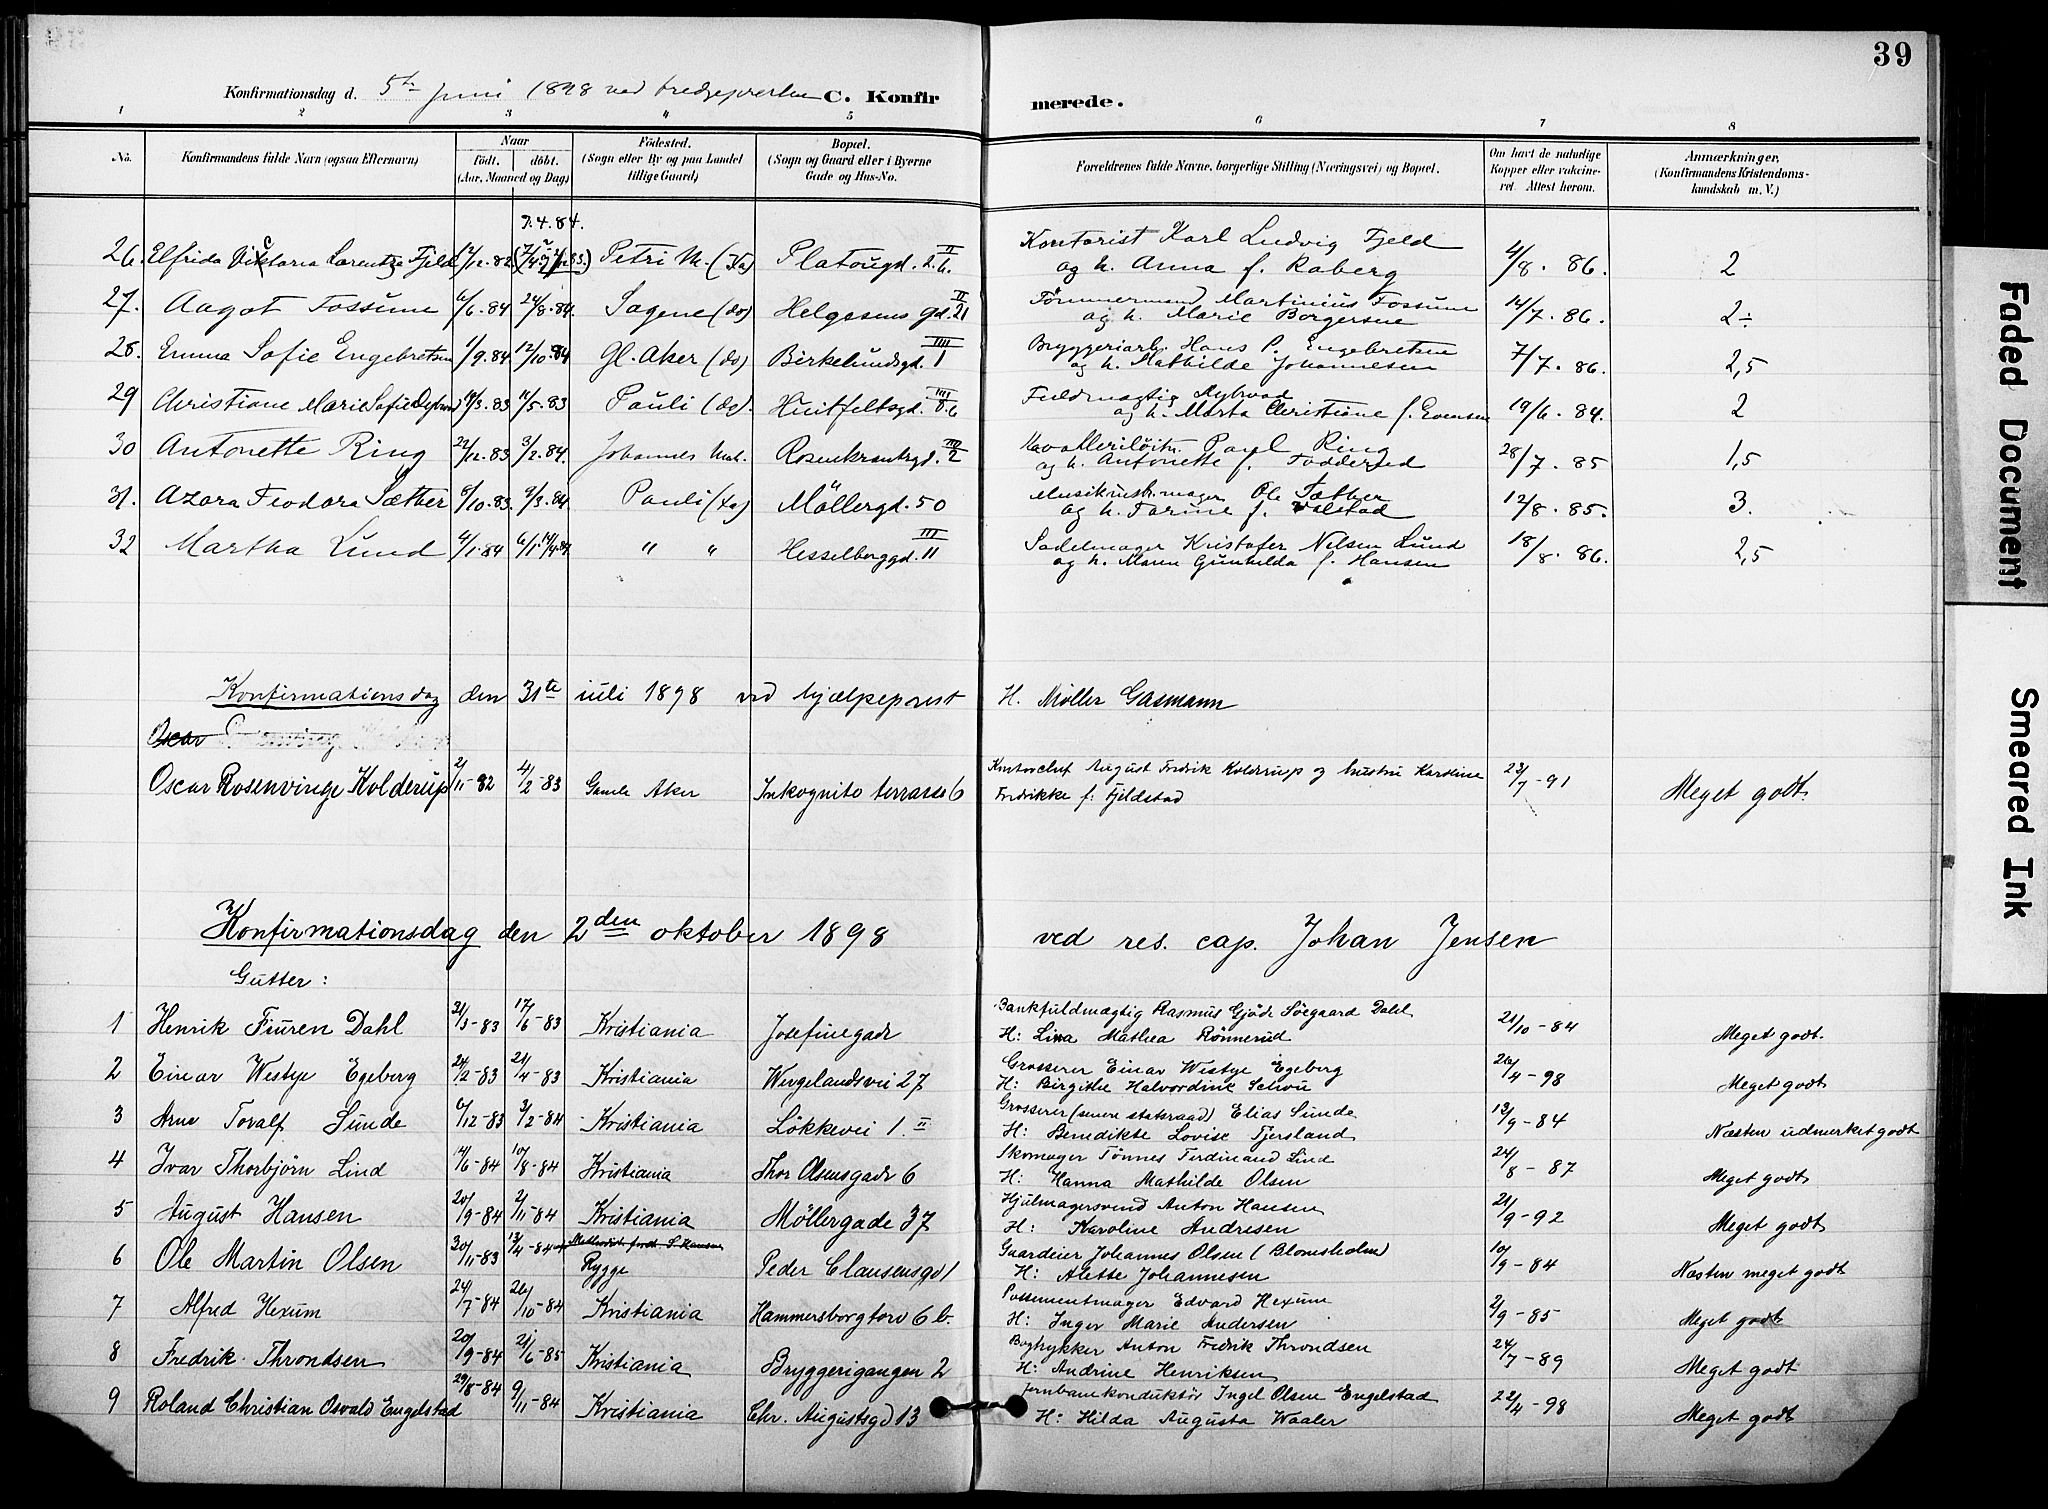 39
Konfirmationsdag d. 5te juni 1898 ved C. Konfirmerede.
1 2 3 4 5 6 7 8
No. Konfirmandens fulde Navn (ogsaa Efternavn) Naar født. døbt. (Aar, Maaned og Dag) Födested. (Sogn eller By og paa Landet tillige Gaard) Bopæl. (Sogn og Gaard eller i Byerne Gade og Hus-No. Forældrenes fulde Navne, borgerlige Stilling (Næringsvei) og Bopæl. Om havt de naturlige Kopper eller vakcineret. Attest herom. Anmærkninger, (Konfirmandens Kristendomskundskab m. V.)
7.4.84.
26. Elfrida Victoria Larentze Fjeld 12/12.82 Petri M. (Ka) Platougd. 2.b. II Kontorist Karl Ludvig Fjeld 4/8.86. 2
og h. Anna f. Raberg
27. Aagot Fossum 6/6.84 24/8.84. Sagene (do) Helgesens gd. 21 II Tømmermand Martinius Fossum 14/7.86. 2÷
og h. Marie Borgersen
28. Emma Sofie Engebretsen 1/9.84 12/10.84 Gl. Aker (do) Birkelundsgd. 1 IIII Bryggeriarb. Hans P. Engebretsen 7/7.86. 2,5
og h. Mathilde Johannesen
29 Christiane Marie Sofie 14/3.83 11/5.83 Pauli (do). Huitfeltsgd. 8.b IIII Fuldmægtig 19/6.84. 2
og h. Marta Christiane f. Evensen
30 Antonette Ring 22/12.83 3/2.84. Johannes Met. Rosenkrantzgd. 2 III Kavallerilöitn. Paul Ring 28/7.85 1,5
og h. Antonette f.
31. Azora Feodora Sæther 6/10.83. 9/3.84 Pauli (Ka) Möllergd. 50 Musikinstr.mager Ole Sæther 12/8.85. 3.
og h. Farine f. Valstad
32 Martha Lund 4/1.84 " " Hesselberggd. 11 III Sadelmager Kristofer Nilsen Lund 18/8.86. 2,5
og h. Maren Gunhilda f. Hansen
Konfirmationsdag den 31te juli 1898 ved hjælpeprest H. Møller Gasmann
Oscar
Oscar Rosenvinge Kolderup 2/11-82 4/2-83 Gamle Aker Inkognito terrasse 6 Kontorchef August Fredrik Kolderup og hustru Karoline 23/7-91 Meget godt.
Fredrikke f. Fjeldstad
Konfirmationsdag den 2den oktober 1898 ved res. cap. Johan Jensen
Gutter:
1 Henrik Fiuren Dahl 31/3-83 17/6-83 Kristiania Josefinegade Bankfuldmægtig Rasmus Gjöde Söegaard Dahl 21/10-84 Meget godt.
H: Lina Mathea Rönnerud
2 Einar Westye Egeberg 24/2-83 21/4-83 Kristiania Wergelandsvei 27 Grosserer Einar Westye Egeberg 26/4-98 Meget godt
H: Birgithe Halvordine Schou
3 Arne Toralf Sunde 6/12-83 3/2-84 Kristiania Lökkevei 1. II Grosserer (senere statsraad) Elias Sunde 13/9-84 Næsten udmerket godt
H: Benedikte Lovise Fjersland
4 Ivar Thorbjörn Lind 14/6-84 10/8-84 Kristiania Thor Olsensgade 6 Skomager Tönnes Ferdinand Lind 24/8-87 Meget godt
H: Hanna Mathilde Olsen
5 August Hansen 20/9-84 2/11-84 Kristiania Möllergade 37 Hjulmagersvend Anton Hansen 21/9-92 Meget godt
H: Karoline Andresen
6 Ole Martin Olsen 30/11-83 13/4-84 Rygge Peder Clausensgd 1 Gaardeier Johannes Olsen (Blomsholm) 10/9-84 Næsten meget godt
H: Alette Johannesen
7 Alfred Hexum 24/7-84 26/10-84 Kristiania Hammersborgtorv 6 b. Possementmager Edvard Hexum 2/9-85 Meget godt
H: Inger Marie Andersen
8 Fredrik Throndsen 20/9-84 21/6-85 Kristiania Bryggerigangen 2 Bogtrykker Anton Fredrik Throndsen 24/7-89 Meget godt
H: Andrine Henriksen
9 Roland Christian Osvald Engelstad 29/8-84 9/11-84 Kristiania Chr. Augustsgd 13 Jernbanekonduktör Ingel Olsen Engelstad 22/4-98 Meget godt
H: Hilda Augusta Waaler
Faded Document
Smeared Ink